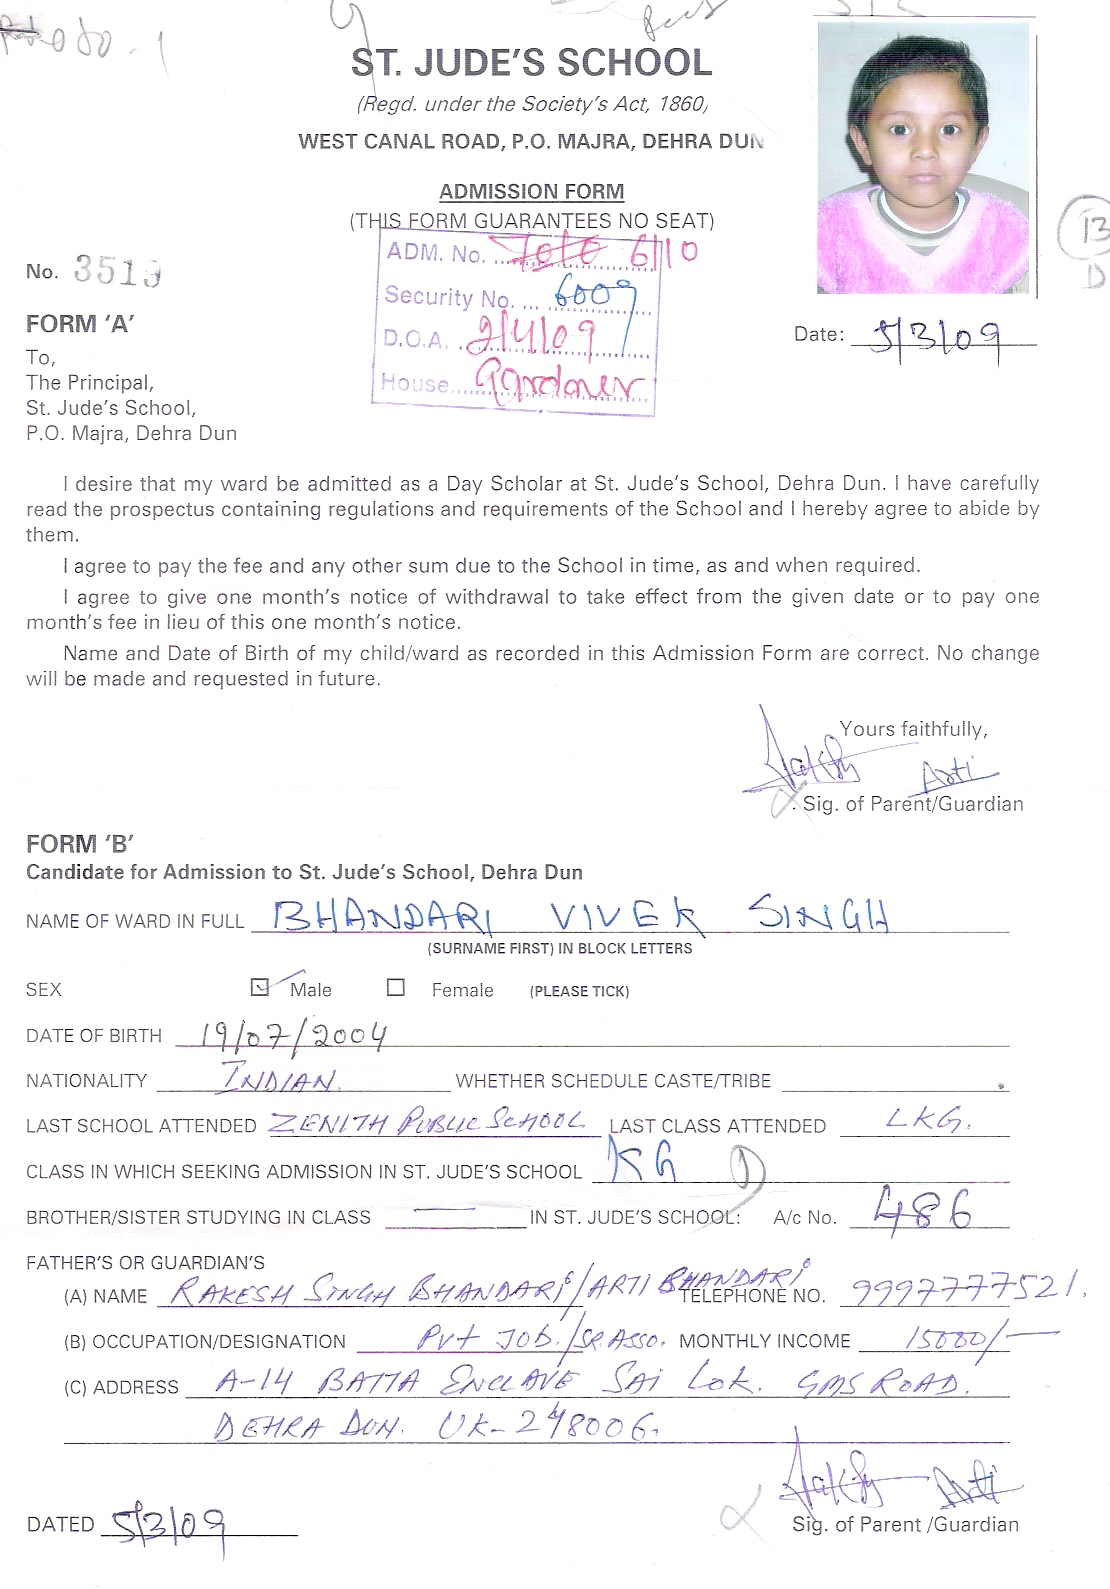 ST. JUDE'S SCHOOL
(Regd. under the Society's Act, 1860)
WEST CANAL ROAD, P.O. MAJRA, DEHRA DUN
ADMISSION FORM
(THIS FORM GUARANTEES NO SEAT)
ADM. No. 6110
Security No. ... 6009
D.O.A. 2/4/09
House.... Gardner
13
D
No. 3519
FORM 'A'
Date: 5/3/09
To,
The Principal,
St. Jude's School,
P.O. Majra, Dehra Dun
I desire that my ward be admitted as a Day Scholar at St. Jude's School, Dehra Dun. I have carefully
read the prospectus containing regulations and requirements of the School and I hereby agree to abide by
them.
I agree to pay the fee and any other sum due to the School in time, as and when required.
I agree to give one month's notice of withdrawal to take effect from the given date or to pay one
month's fee in lieu of this one month's notice.
Name and Date of Birth of my child/ward as recorded in this Admission Form are correct. No change
will be made and requested in future.
Yours faithfully,
Arti
Sig. of Parent/Guardian
FORM 'B'
Candidate for Admission to St. Jude's School, Dehra Dun
NAME OF WARD IN FULL BHANDARI VIVEK SINGH
(SURNAME FIRST) IN BLOCK LETTERS
SEX Male Female (PLEASE TICK)
DATE OF BIRTH 19/07/2004
NATIONALITY INDIAN. WHETHER SCHEDULE CASTE/TRIBE
LAST SCHOOL ATTENDED ZENITH PUBLIC SCHOOL LAST CLASS ATTENDED LKG.
CLASS IN WHICH SEEKING ADMISSION IN ST. JUDE'S SCHOOL KG D
BROTHER/SISTER STUDYING IN CLASS — IN ST. JUDE'S SCHOOL: A/c No. 486
FATHER'S OR GUARDIAN'S
(A) NAME RAKESH SINGH BHANDARI/ARTI BHANDARI TELEPHONE NO. 9997777521.
(B) OCCUPATION/DESIGNATION Pvt JOB./SR.ASSO. MONTHLY INCOME 15000/—
(C) ADDRESS A-14 BATTA ENCLAVE SAI LOK. GMS ROAD.
DEHRA DUN. UK-248006.
Arti
DATED 5/3/09 Sig. of Parent /Guardian